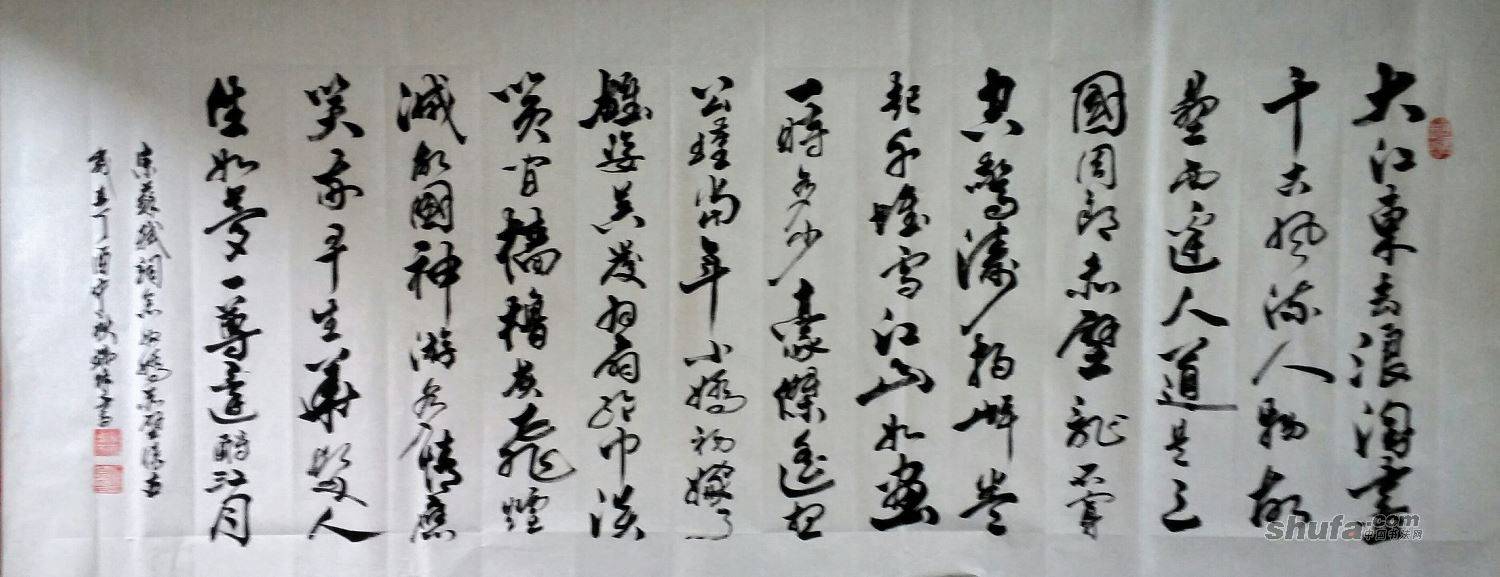 大江東去浪淘盡
千古風流人物故
壘西邊人道是三
國周郎赤壁亂石穿
空驚濤拍岸卷
起千堆雪江山如畫
一時多少豪傑遙想
公瑾當年小嬌初嫁了
雄姿英發羽扇綸巾談
笑間檣櫓灰飛煙
滅故國神游多情應
笑我早生華髮人
生如夢一尊還酹江月
宋蘇軾詞念奴嬌赤壁懷古
歲在丁酉中秋書
shufa.com
中国书法网